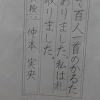 で、百人一首のかるた
ありました。私は札
取りました。
段 仲本 実央